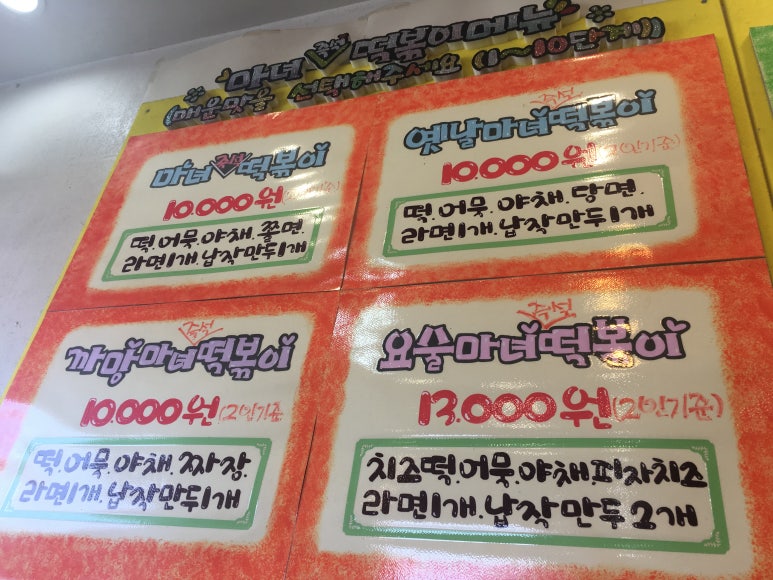 마녀 즉석 떡볶이 메뉴
(매운맛을 선택해주세요 (1~10단계))
마녀 즉석 떡볶이
10.000원 (2인기준)
떡.어묵.야채.쫄면.
라면1개.납작만두1개
옛날마녀 즉석 떡볶이
10.000원 (2인기준)
떡.어묵.야채.당면.
라면1개.납작만두1개
까망마녀 즉석 떡볶이
10.000원 (2인기준
떡.어묵.야채.짜장.
라면1개.납작만두1개
요술마녀 즉석 떡볶이
13.000원 (2인기준)
치즈떡.어묵.야채.피자치즈
라면1개.납작만두2개